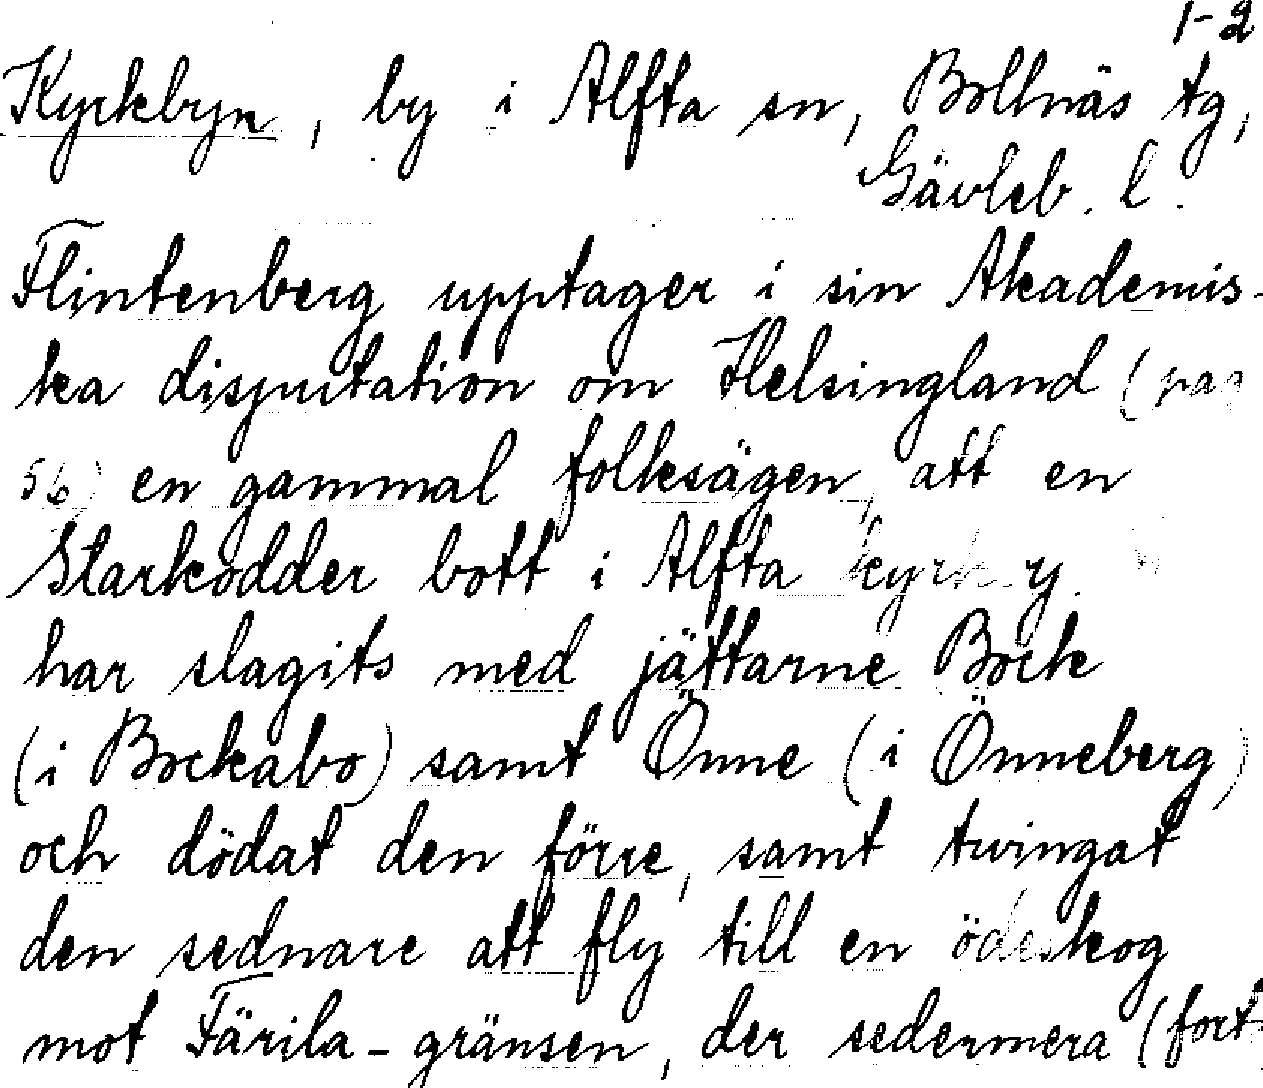 1-2
Kyrkbyn, by i Alfta sn, Bollnäs tg,
Gävleb. l.
Flintenberg upptager i sin Akademis-
ka disputation om Helsingland (pag
56) en gammal folksägen, att en
Starkodder bott i Alfta kyrkby
har slagits med jättarne Bock
(i Bockabo) samt Önne (i Önneberg)
och dödat den förre, samt tvingat
den sednare att fly till en ödeskog
mot Färila-gränsen, der sedermera (fort